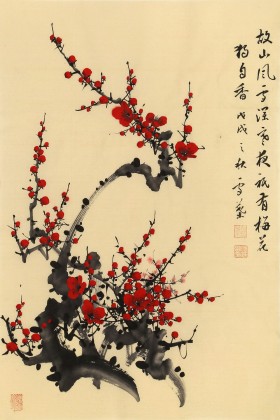 故山风雪深寒夜只有梅花
独自香 戊戌之秋 雪